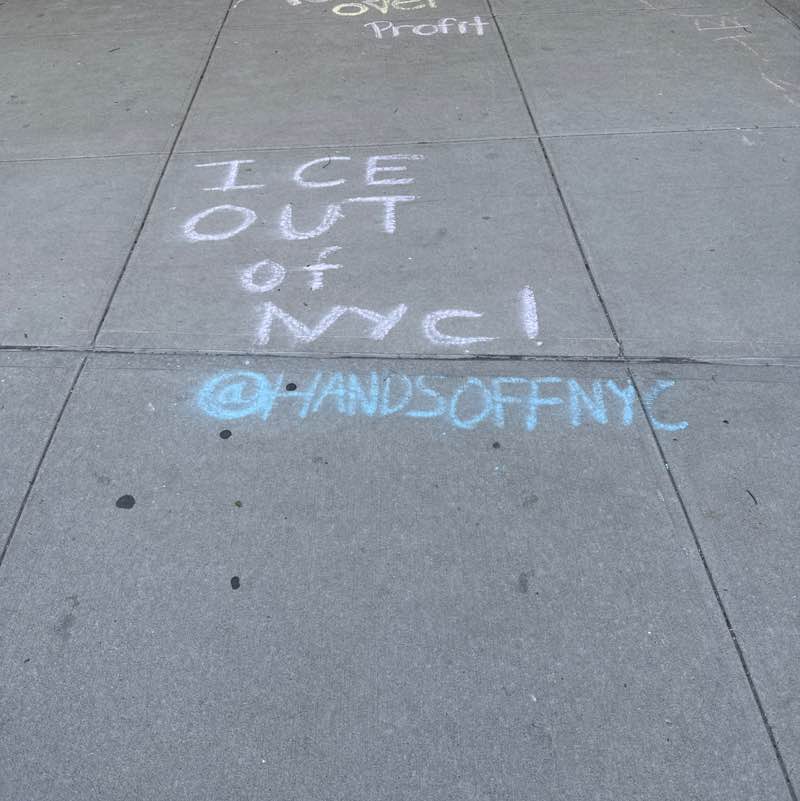 over
Profit
ICE
OUT
of
NYC!
@HANDSOFFNYC